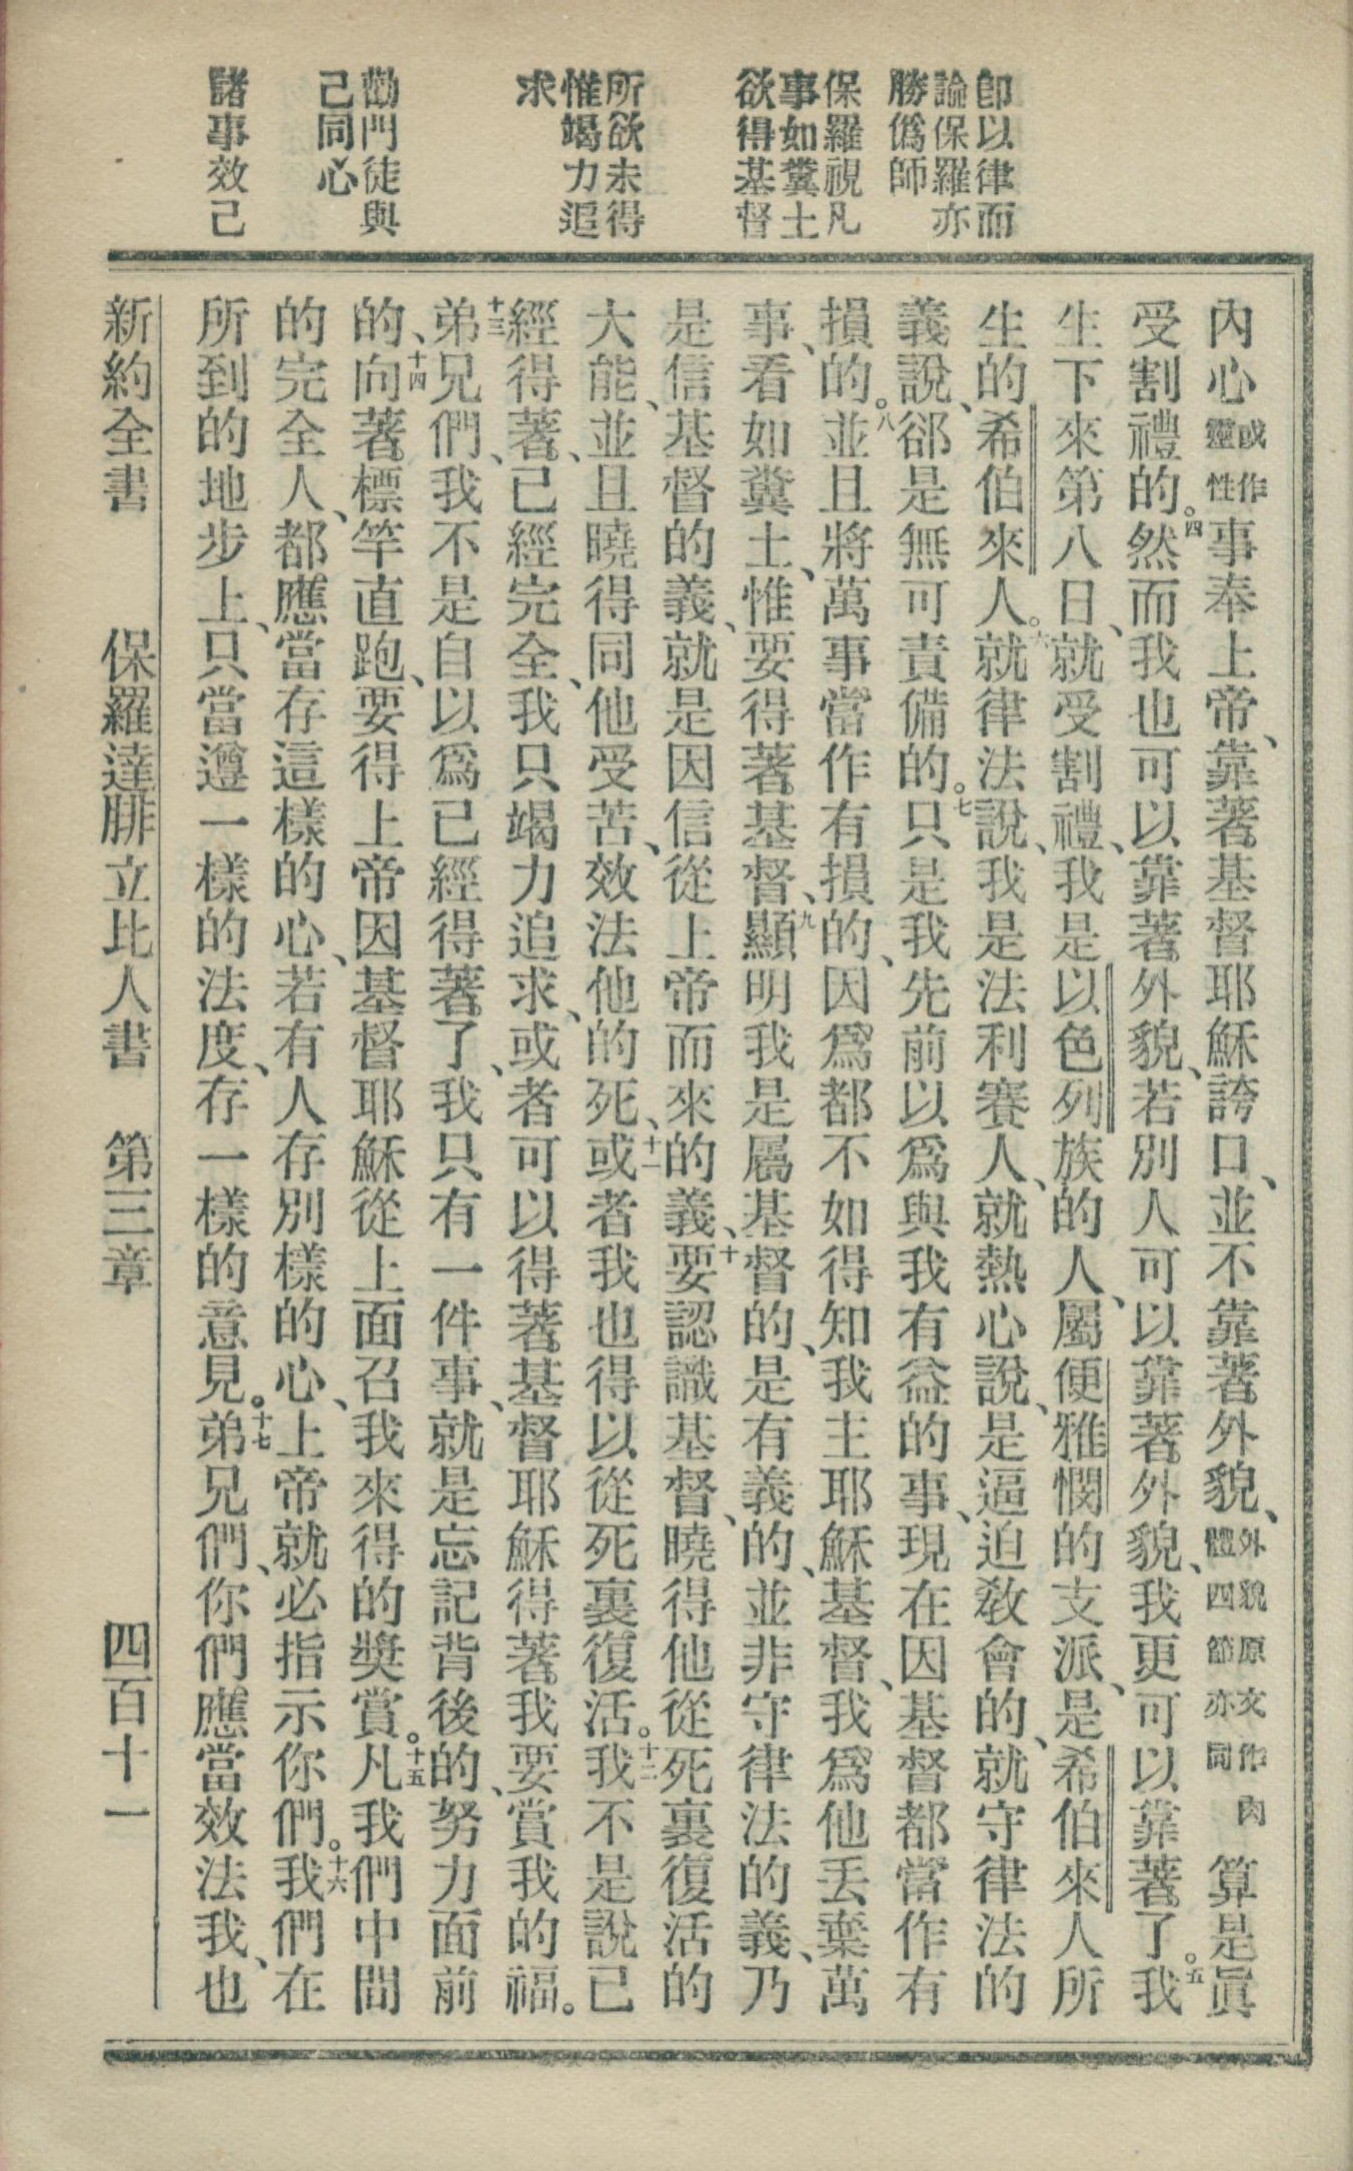 即以律而
論保羅亦
勝僞師
保羅視凡
事如糞土
欲得基督
所欲未得
惟竭力追
求
勸門徒與
己同心
諸事效己
內心或作靈性事奉上帝、靠著基督耶穌誇口、並不靠著外貌、外貌原文作肉體四節亦同算是眞
受割禮的。四然而我也可以靠著外貌、若別人可以靠著外貌、我更可以靠著了。五我
生下來第八日、就受割禮、我是以色列族的人、屬便雅憫的支派、是希伯來人所
生的希伯來人。六就律法說、我是法利賽人、就熱心說、是逼迫敎會的、就守律法的
義說、郤是無可責備的。七只是我先前以爲與我有益的事、現在因基督都當作有
損的。八並且將萬事當作有損的、因爲都不如得知我主耶穌基督、我爲他丟棄萬
事、看如糞土、惟要得著基督、九顯明我是屬基督的、是有義的、並非守律法的義、乃
是信基督的義、就是因信從上帝而來的義、十要認識基督、曉得他從死裏復活的
大能、並且曉得同他受苦、效法他的死、十一或者我也得以從死裏復活。十二我不是說已
經得著、已經完全、我只竭力追求、或者可以得著基督耶穌得著我要賞我的福。
十三弟兄們、我不是自以爲已經得著了、我只有一件事、就是忘記背後的、努力面前
的、十四向著標竿直跑、要得上帝因基督耶穌從上面召我來得的獎賞。十五凡我們中間
的完全人、都應當存這樣的心、若有人存別樣的心、上帝就必指示你們。十六我們在
所到的地步上、只當遵一樣的法度、存一樣的意見。十七弟兄們、你們應當效法我、也
新約全書　保羅達腓立比人書　第三章　四百十一